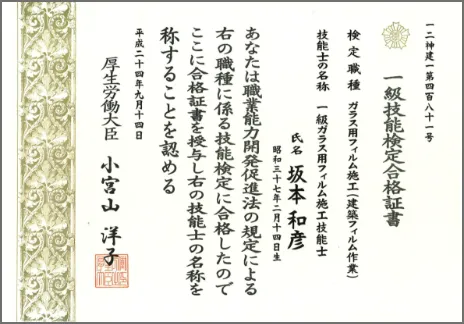 一二神建一第四百八十一号
一級技能検定合格証書
検定職種 ガラス用フィルム施工(建築フィルム作業)
技能士の名称 一級ガラス用フィルム施工技能士
氏名 坂本和彦
昭和三十七年二月十四日生
あなたは職業能力開発促進法の規定による
右の職種に係る技能検定に合格したので
ここに合格証書を授与し右の技能士の名称を
称することを認める
平成二十四年九月十四日
厚生労働大臣 小宮山洋子